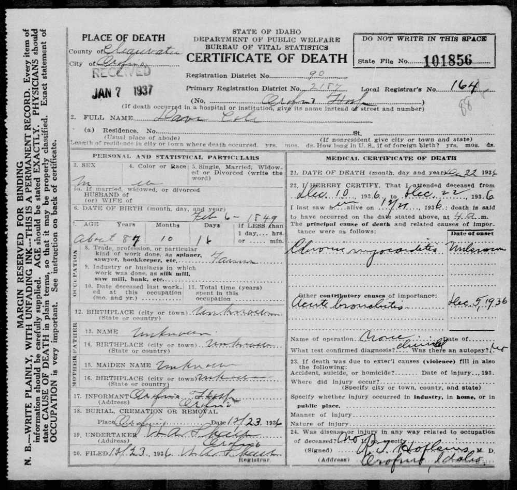 STATE OF IDAHO
DEPARTMENT OF PUBLIC WELFARE
BUREAU OF VITAL STATISTICS
CERTIFICATE OF DEATH
PLACE OF DEATH
County of Clearwater
City of Orofino
RECEIVED
JAN 7 1937
DO NOT WRITE IN THIS SPACE
State File No. 101856
Registration District No. 90
Primary Registration District No. 2187 Local Registrar's No. 164
(No. Orofino Hosp
(If death occurred in a hospital or institution, give its name instead of street and number)
88
2. FULL NAME Cole
(a) Residence. No. St.
(Usual place of abode) (If nonresident give city or town and state)
Length of residence in city or town where death occurred yrs. mos. days. How long in U. S., if of foreign birth? yrs.
PERSONAL AND STATISTICAL PARTICULARS
3. SEX 4. Color or Race 5. Single, Married, Widowed, or Divorced (write the word)
m
5a. If married, widowed, or divorced
HUSBAND of
(or) WIFE of
6. DATE OF BIRTH (month, day, and year) Feb 6 - 1849
7. AGE If LESS than
1 day, hrs.
or min.
about 87 10 16
8. Trade, profession, or particular kind of work done, as spinner, sawyer, bookkeeper, etc.
9. Industry or business in which work was done, as silk mill, saw mill, bank, etc.
10. Date deceased last worked at this occupation (mo. and yr.)
11. Total time (years) spent in this occupation
OCCUPATION
12. BIRTHPLACE (city or town) Unknown
(State or country)
13. NAME Unknown
14. BIRTHPLACE (city or town) Unknown
(State or country)
15. MAIDEN NAME Unknown
16. BIRTHPLACE (city or town) Unknown
(State or country)
17. INFORMANT Orofino Hosp
(Address) Orofino
18. BURIAL CREMATION OR REMOVAL
Place Orofino Date 12/23 1936
19. UNDERTAKER
(Address) Orofino
20. FILED 12/23, 1936
Registrar
MEDICAL CERTIFICATE OF DEATH
21. DATE OF DEATH (month, day and year) Dec 22 1936
22. I HEREBY CERTIFY, That I attended deceased from
Dec. 10 1936 to Dec. 22 1936
I last saw alive on 1936, death is said
to have occurred on the date stated above, at m.
The principal cause of death and related causes of importance were as follows: Date of onset
Chronic myocarditis Unknown
Other contributory causes of importance:
Acute bronchitis Dec. 9, 1936
Name of operation none
What test confirmed diagnosis? clinical Was there an autopsy? no
23. If death was due to extert causes (violence) fill in also the following:
Accident, suicide, or homicide? Date of injury , 193
Where did injury occur?
(Specify city or town, county, and state)
Specify whether injury occurred in industry, in home, or in public place.
Manner of injury
Nature of injury
24. Was disease or injury in any way related to occupation of deceased? no
(Signed) M. D.
(Address) Orofino, Idaho.
N. B.—WRITE PLAINLY, WITH UNFADING INK—THIS IS A PERMANENT RECORD. Every item of
information should be carefully supplied. AGE should be stated EXACTLY. PHYSICIANS should
state CAUSE OF DEATH in plain terms, so that it may be properly classified. Exact statement of
OCCUPATION very important. See instruction on back of certificate.
MARGIN RESERVED FOR BINDING